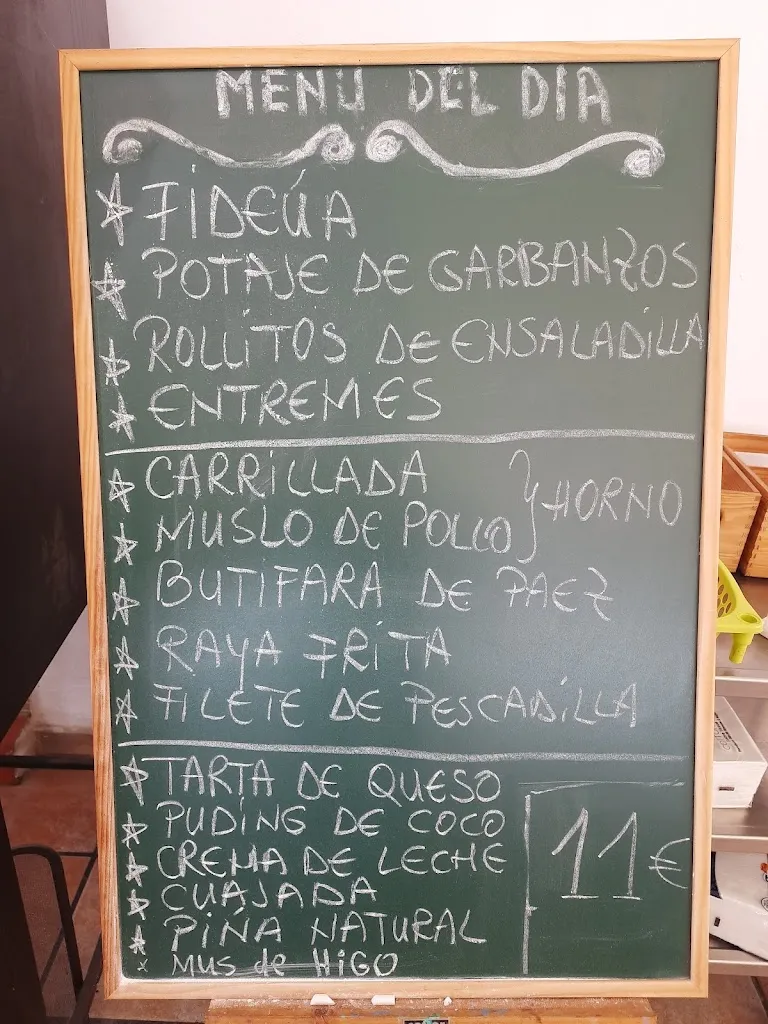 MENU DEL DIA
FIDEÚA
POTAJE DE GARBANZOS
ROLLITOS DE ENSALADILLA
ENTREMES
CARRILLADA
MUSLO DE POLLO } HORNO
BUTIFARA DE PAEZ
RAYA FRITA
FILETE DE PESCADILLA
TARTA DE QUESO
PUDING DE COCO
CREMA DE LECHE
CUAJADA
PIÑA NATURAL
MUS de HIGO
11€